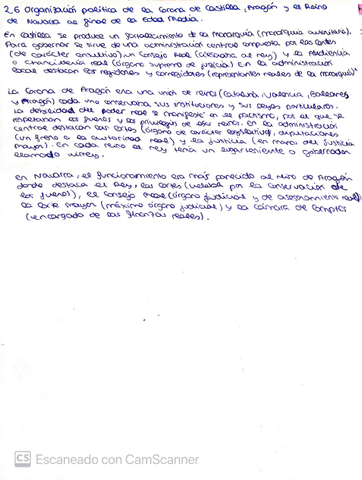 2.6 Organización política de la Corona de Castilla, Aragón y el Reino
de Navarra al final de la Edad Media.
En Castilla se produce un fortalecimiento de la monarquía (monarquía autoritaria).
Para gobernar se sirve de una administración central compuesta por las Cortes
(de carácter consultivo), un Consejo Real (aconsejaba al rey) y la Audiencia
o Chancillería real (órgano supremo de justicia). En la administración
local destacan los regidores y corregidores (representantes reales de la monarquía).
La Corona de Aragón era una unión de reinos (Cataluña, Valencia, Baleares
y Aragón) cada uno conservaba sus instituciones y sus leyes particulares.
La debilidad del poder real se manifiesta en el pactismo, por el que se
respetaban los fueros y los privilegios de cada reino. En la administración
central destacan las Cortes (órgano de carácter legislativo), diputaciones
(un freno a la autoridad real) y la justicia (en manos del Justicia
Mayor). En cada reino el rey tenía un lugarteniente o gobernador
llamado virrey.
En Navarra, el funcionamiento era más parecido al Reino de Aragón
donde destaca el Rey, las Cortes (velaban por la conservación de
los fueros), el Consejo Real (órgano judicial y de asesoramiento real)
la Corte Mayor (máximo órgano judicial) y la Cámara de Comptos
(encargado de las finanzas reales).
CS Escaneado con CamScanner